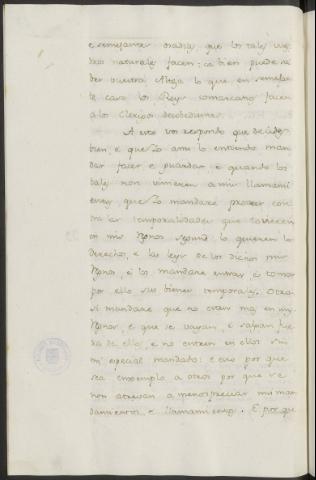 e semejantes osadias que los tales vues
naturales facen: ca bien puede sa
ber vuestra Alteza lo que en semejan
te caso los Reyes comarcanos facen
a los Clerigos desobedientes.
A esto vos respondo que decides
bien, e que Yo ansi lo entiendo man
dar facer e guardar e quando los
tales non vinieren a mis llamami
entos, que Yo mandaré proceer con
tra las temporalidades que tovieren
en mis Reynos segund lo quieren los
derechos, e las leyes de los dichos mis
Reynos, é los mandaré entrar, é tomar
por ello sus bienes temporales. Otro
si mandaré que no esten mas en mis
Reynos, e que se vayan, e salgan fue
ra de ellos, e no entren en ellos sin
mi especial mandado: e esto por que
sea enxemplo a otros por que se
non atrevan a menospreciar mis man
damientos, e llamamientos. E por que